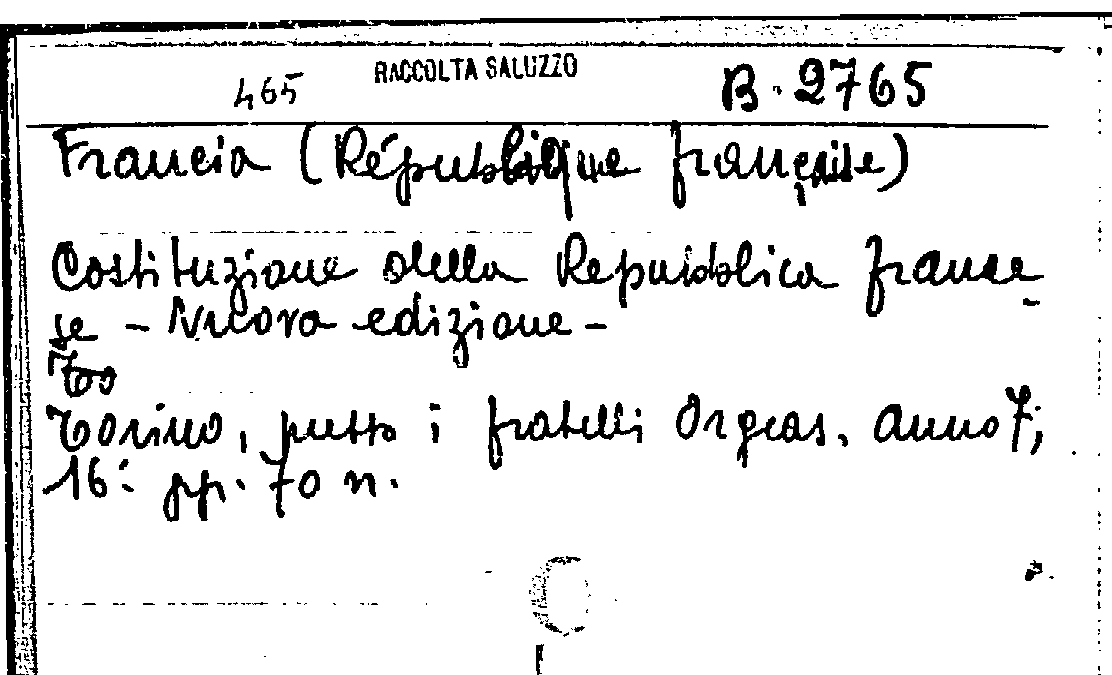 465 RACCOLTA SALUZZO B. 2765
Francia (République française)
Costituzione della Repubblica france
se - Nuova edizione -
To
Torino, presso i fratelli Orgeas, anno 7;
16.° pp. 70 n.